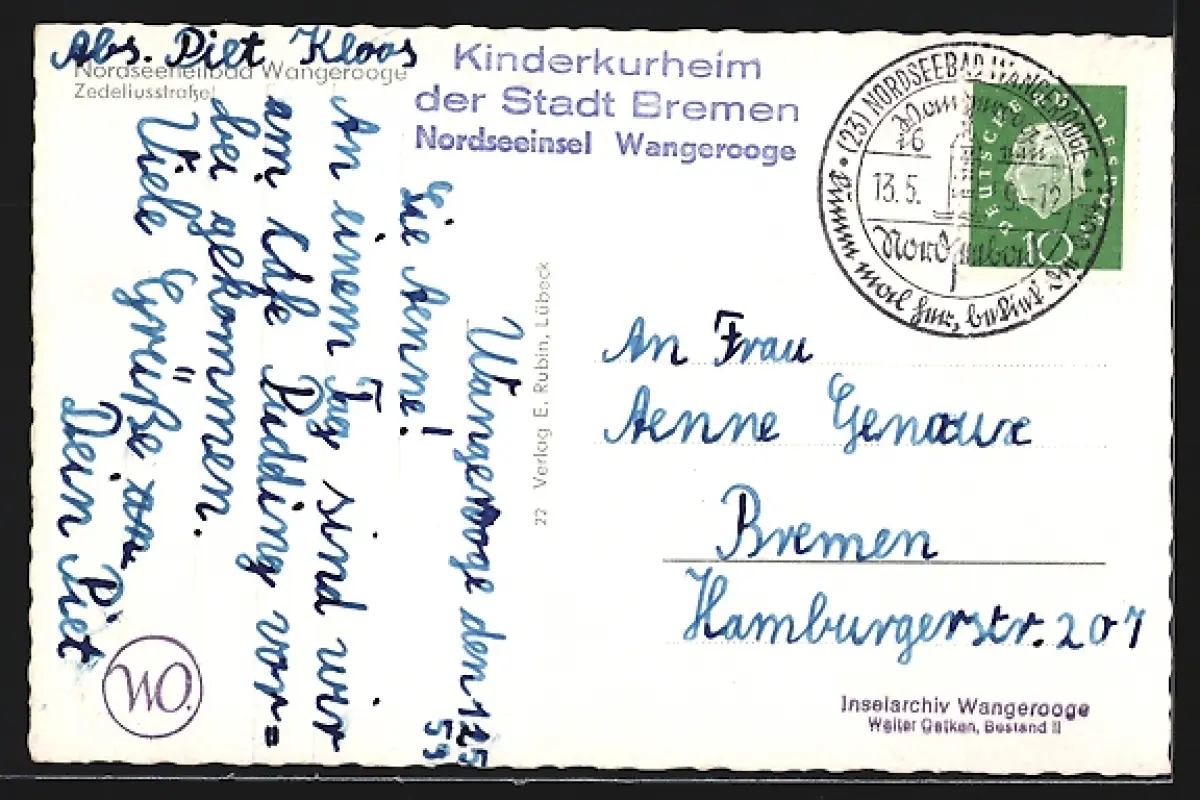 Abs. Piet Kloos
Nordseeheilbad Wangerooge
Zedeliusstraße
Kinderkurheim
der Stadt Bremen
Nordseeinsel Wangerooge
(23) NORDSEEBAD WANGEROOGE
16
13.5.
DEUTSCHE BUNDESPOST
10
Wangerooge den 12 5
59
Lie Aenne!
An einem Tag sind wir
am Kafe Pudding vor=
bei gekommen.
Viele Grüße
Dein Piet
22 Verlag E. Rubin, Lübeck
An Frau
Aenne Genaux
Bremen
Hamburgerstr. 207
WO.
Inselarchiv Wangerooge
Walter Oetken, Bestand II